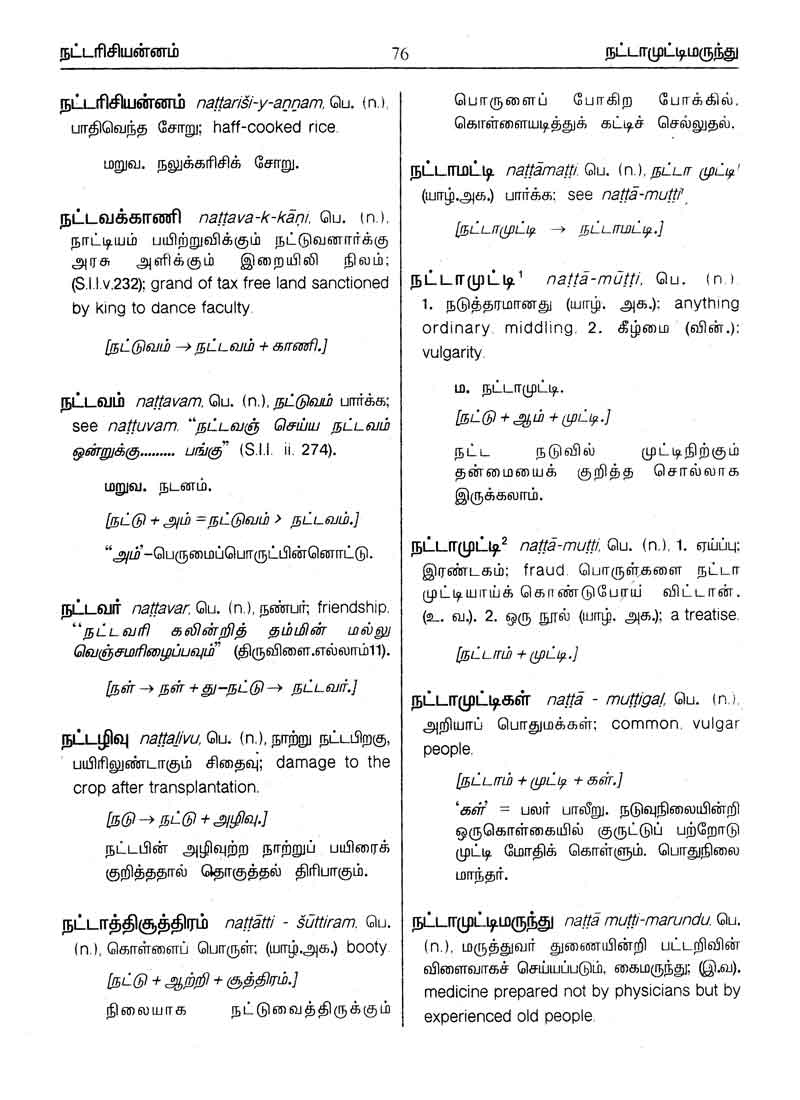 நட்டரிசியன்னம்
76
நட்டாமுட்டிமருந்து
நட்டரிசியன்னம் naṭṭariši-y-aṉṉam, பெ. (n.),
பாதிவெந்த சோறு; haff-cooked rice.
மறுவ. நலுக்கரிசிக் சோறு.
நட்டவக்காணி naṭṭava-k-kāṇi, பெ. (n.),
நாட்டியம் பயிற்றுவிக்கும் நட்டுவனார்க்கு
அரசு அளிக்கும் இறையிலி நிலம்;
(S.I.I.v.232); grand of tax free land sanctioned
by king to dance faculty.
[நட்டுவம் → நட்டவம் + காணி.]
நட்டவம் naṭṭavam, பெ. (n.), நட்டுவம் பார்க்க;
see naṭṭuvam. “நட்டவஞ் செய்ய நட்டவம்
ஒன்றுக்கு......... பங்கு” (S.I.I. ii. 274).
மறுவ. நடனம்.
[நட்டு + அம் = நட்டுவம் > நட்டவம்.]
“அம்’–பெருமைப்பொருட்பின்னொட்டு.
நட்டவர் naṭṭavar, பெ. (n.), நண்பர்; friendship.
‘‘நட்டவரி கலின்றித் தம்மின் மல்லு
வெஞ்சமரிழைப்பவும்” (திருவிளை.எல்லாம்11).
[நள் → நள் + து–நட்டு → நட்டவர்.]
நட்டழிவு naṭṭaḻivu, பெ. (n.), நாற்று நட்டபிறகு,
பயிரிலுண்டாகும் சிதைவு; damage to the
crop after transplantation.
[நடு → நட்டு + அழிவு.]
நட்டபின் அழிவுற்ற நாற்றுப் பயிரைக்
குறித்ததால் தொகுத்தல் திரிபாகும்.
நட்டாத்திசூத்திரம் naṭṭātti - šūttiram, பெ.
(n.), கொள்ளைப் பொருள்; (யாழ்.அக.) booty.
[நட்டு + ஆற்றி + சூத்திரம்.]
நிலையாக நட்டுவைத்திருக்கும்
பொருளைப் போகிற போக்கில்.
கொள்ளையடித்துக் கட்டிச் செல்லுதல்.
நட்டாமட்டி naṭṭāmaṭṭi, பெ. (n.), நட்டா முட்டி¹
(யாழ்.அக.) பார்க்க; see naṭṭā-muṭṭi¹.
[நட்டாமுட்டி → நட்டாமட்டி.]
நட்டாமுட்டி¹ naṭṭā-mūṭṭi, பெ. (n.)
1. நடுத்தரமானது (யாழ். அக.); anything
ordinary. middling. 2. கீழ்மை (வின்.);
vulgarity.
ம. நட்டாமுட்டி.
[நட்டு + ஆம் + முட்டி.]
நட்ட நடுவில் முட்டிநிற்கும்
தன்மையைக் குறித்த சொல்லாக
இருக்கலாம்.
நட்டாமுட்டி² naṭṭā-muṭṭi, பெ. (n.), 1. ஏய்ப்பு;
இரண்டகம்; fraud. பொருள்களை நட்டா
முட்டியாய்க் கொண்டுபோய் விட்டான்.
(உ. வ.). 2. ஒரு நூல் (யாழ். அக.); a treatise.
[நட்டாம் + முட்டி.]
நட்டாமுட்டிகள் naṭṭā - muṭṭigaḷ, பெ. (n.),
அறியாப் பொதுமக்கள்; common, vulgar
people.
[நட்டாம் + முட்டி + கள்.]
‘கள்’ = பலர் பாலீறு. நடுவுநிலையின்றி
ஒருகொள்கையில் குருட்டுப் பற்றோடு
முட்டி மோதிக் கொள்ளும். பொதுநிலை
மாந்தர்.
நட்டாமுட்டிமருந்து naṭṭā muṭṭi-marundu, பெ.
(n.), மருத்துவர் துணையின்றி பட்டறிவின்
விளைவாகச் செய்யப்படும், கைமருந்து; (இ.வ).
medicine prepared not by physicians but by
experienced old people.